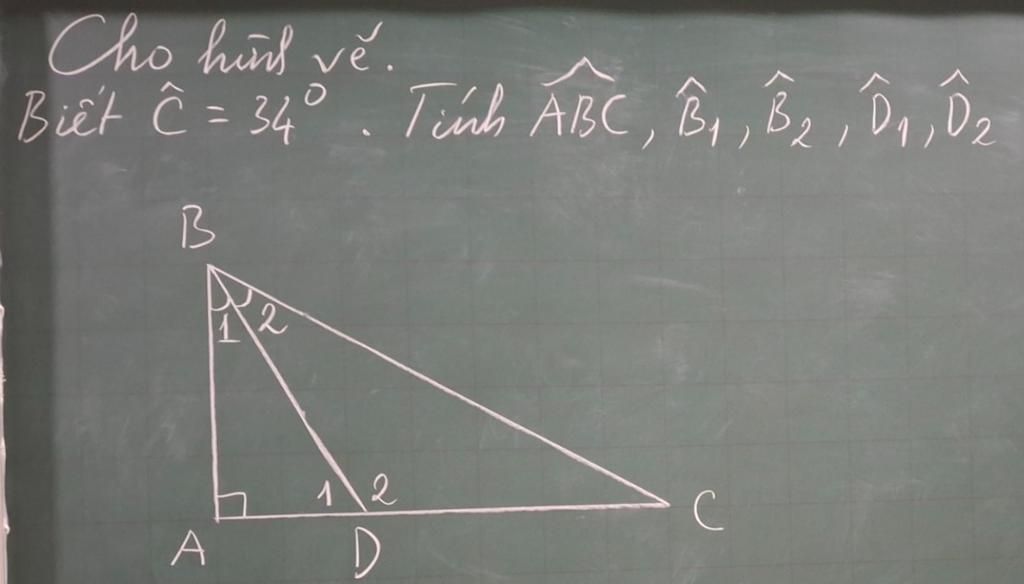 Cho hình vẽ.
Biết Ĉ = 34⁰. Tính ABC, B̂1, B̂2, D̂1, D̂2
B
1 2
1 2
A D C